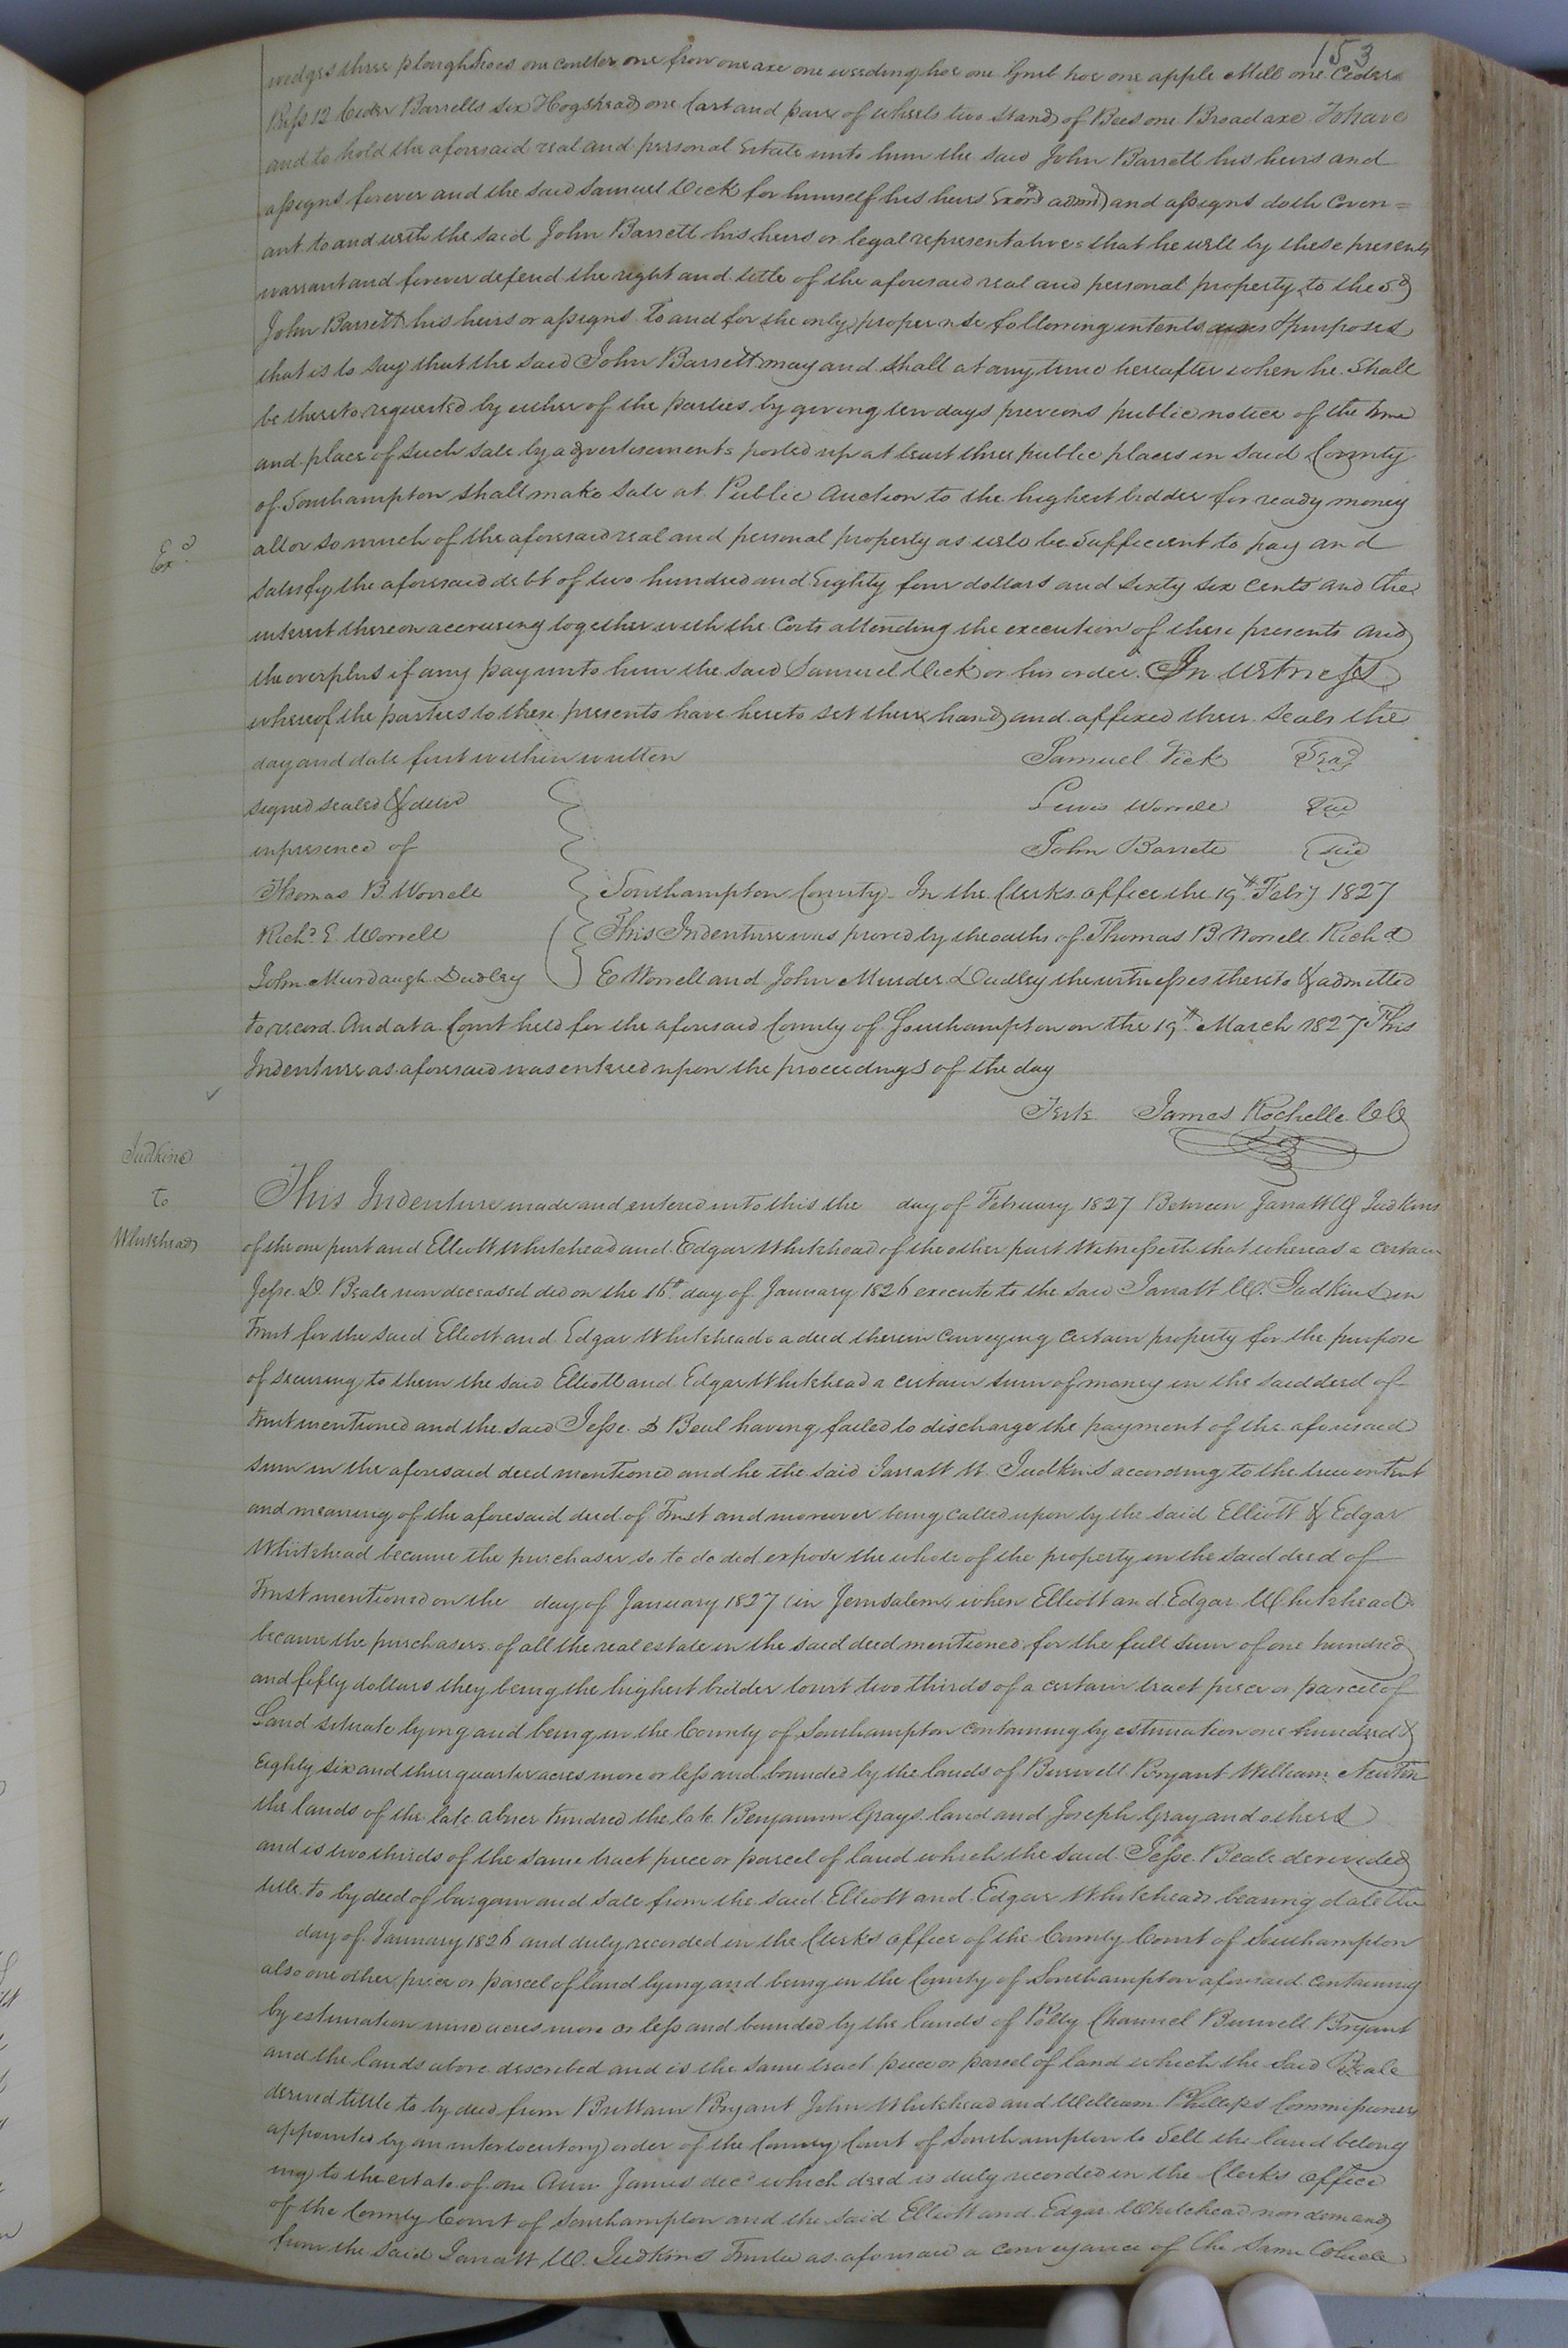 153
wedges three plough hoes one coulter one frow one axe one weeding hoe one Grub hoe one apple Mill one Cider
Press 12 Cider Barrells six Hogsheads one Cart and pair of wheels two stands of Bees one Broad axe To have
and to hold the aforesaid real and personal Estate unto him the said John Barrett his heirs and
assigns forever and the said Samuel Vick for himself his heirs Exors admrs and assigns doth Coven=
ant to and with the said John Barrett his heirs or legal representatives that he will by these presents
warrant and forever defend the right and title of the aforesaid real and personal property to the sd
John Barrett his heirs or assigns To and for the only proper use following intents & purposes
that is to say that the said John Barrett may and shall at any time hereafter when he shall
be thereto requested by either of the parties by giving ten days previous public notice of the time
and place of such sale by advertisements posted up at least three public places in said County
of Southampton shall make sale at Public Auction to the highest bidder for ready money
all or so much of the aforesaid real and personal property as will be sufficient to pay and
Exd
satisfy the aforesaid debt of two hundred and Eighty four dollars and sixty six cents and the
interest thereon accrueing together with the Costs attending the execution of these presents and
the overplus if any pay unto him the said Samuel Vick or his order. In Witness
whereof the parties to these presents have hereto set their hands and affixed their seals the
day and date first within written Samuel Vick Seal
signed sealed & delivd Lewis Worrell Seal
in presence of John Barrett Seal
Thomas B. Worrell Southampton County. In the Clerks office the 19th Feby 1827
Richd E. Worrell This Indenture was proved by the oaths of Thomas B Worrell Richd
John Murdaugh Dudley E Worrell and John Murder Dudley the witnesses thereto & admitted
to record. And at a Court held for the aforesaid County of Southampton on the 19th March 1827 This
Indenture as aforesaid was entered upon the proceedings of the day
Teste James Rochelle CC
Judkins
to
Whitehead
This Indenture made and entered into this the day of February 1827 Between Jarratt W Judkins
of the one part and Elliott Whitehead and Edgar Whitehead of the other part Witnesseth that whereas a certain
Jesse D. Beale now deceased did on the 16th day of January 1826 execute to the said Jarratt W. Judkins in
Trust for the said Elliott and Edgar Whitehead a deed therein conveying certain property for the purpose
of securing to them the said Elliott and Edgar Whitehead a certain sum of money in the said deed of
Trust mentioned and the said Jesse D Beal having failed to discharge the payment of the aforesaid
sum in the aforesaid deed mentioned and he the said Jarratt W. Judkins according to the true intent
and meaning of the aforesaid deed of Trust and moreover being called upon by the said Elliott & Edgar
Whitehead became the purchaser so to do did expose the whole of the property in the said deed of
Trust mentioned on the day of January 1827 in Jerusalem when Elliott and Edgar Whitehead
became the purchasers of all the real estate in the said deed mentioned for the full sum of one hundred
and fifty dollars they being the highest bidder towit two thirds of a certain tract piece or parcel of
Land situate lying and being in the County of Southampton containing by estimation one hundred &
Eighty six and three quarter acres more or less and bounded by the lands of Burwell Bryant William Newton
the lands of the late Abner the late Benjamin Grays land and Joseph Gray and others
and is two thirds of the same tract piece or parcel of land which the said Jesse Beale
title to by deed of bargain and sale from the said Elliott and Edgar Whitehead bearing date the
day of January 1826 and duly recorded in the Clerks office of the County Court of Southampton
also one other piece or parcel of land lying and being in the County of Southampton aforesaid containing
by estimation nine acres more or less and bounded by the lands of Polly Channel Burwell Bryant
and the lands above described and is the same tract piece or parcel of land which the said Beale
derived tittle to by deed from Brittain Bryant John Whitehead and William Phillips Commissioners
appointed by an interlocutory order of the County Court of Southampton to sell the land belong
ing to the estate of one Ann James decd which deed is duly recorded in the Clerks office
of the County Court of Southampton and the said Elliott and Edgar Whitehead now demand
from the said Jarratt W. Judkins Trustee as aforesaid a conveyance of the same